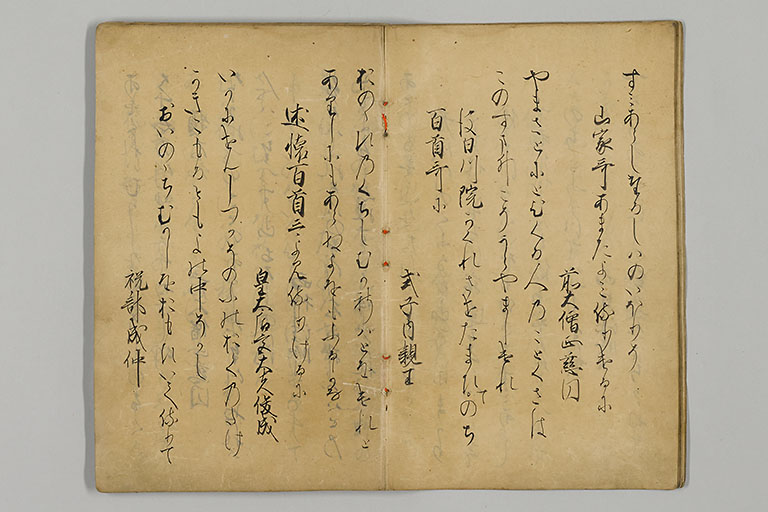 しはのいほりそ
山家哥あまたよみ侍りけるに
前大僧正慈円
やまさとにとひくる人のことくさは
このすまゐこそうらやましけれ
後白川院かくれさせたまひてのち
百首哥に
式子内親王
をのゝえのくちしむかしはとをけれと
ありしにもあらぬよをもふるかな
述懐百首哥よみ侍りけるに
皇太后宮大夫俊成
いかにせんしつかそのふのおくのたけ
かきこもるともよの中そかし
おいのゝちむかしをおもひいて侍て
祝部成仲